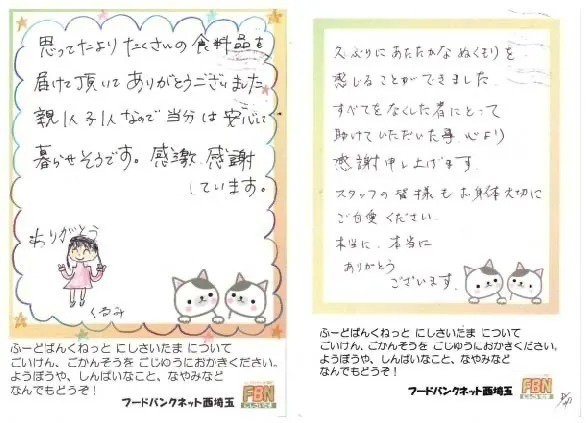 思ってたより たくさんの 食料品を
届けて頂いて ありがとうございました
親1人子1人なので 当分 は 安心に
暮らせそうです。感激 感謝
しています。
ありがとう
くるみ
ふーどばんくねっと にしさいたま について
ごいけん、ごかんそうを ごじゆうにおかきください。
ようぼうや、しんぱいなこと、なやみなど
なんでもどうぞ!
フードバンクネット西埼玉
FBN
久ぶりにあたたかな ぬくもりを
感じることができました
すべてをなくした者にとって
助けていただいた事 心より
感謝申し上げます。
スタッフの皆様も お身体大切に
ご自愛ください。
本当に、本当に
ありがとう
ございます。
ふーどばんくねっと にしさいたま について
ごいけん、ごかんそうを ごじゆうにおかきください。
ようぼうや、しんぱいなこと、なやみなど
なんでもどうぞ!
フードバンクネット西埼玉
FBN